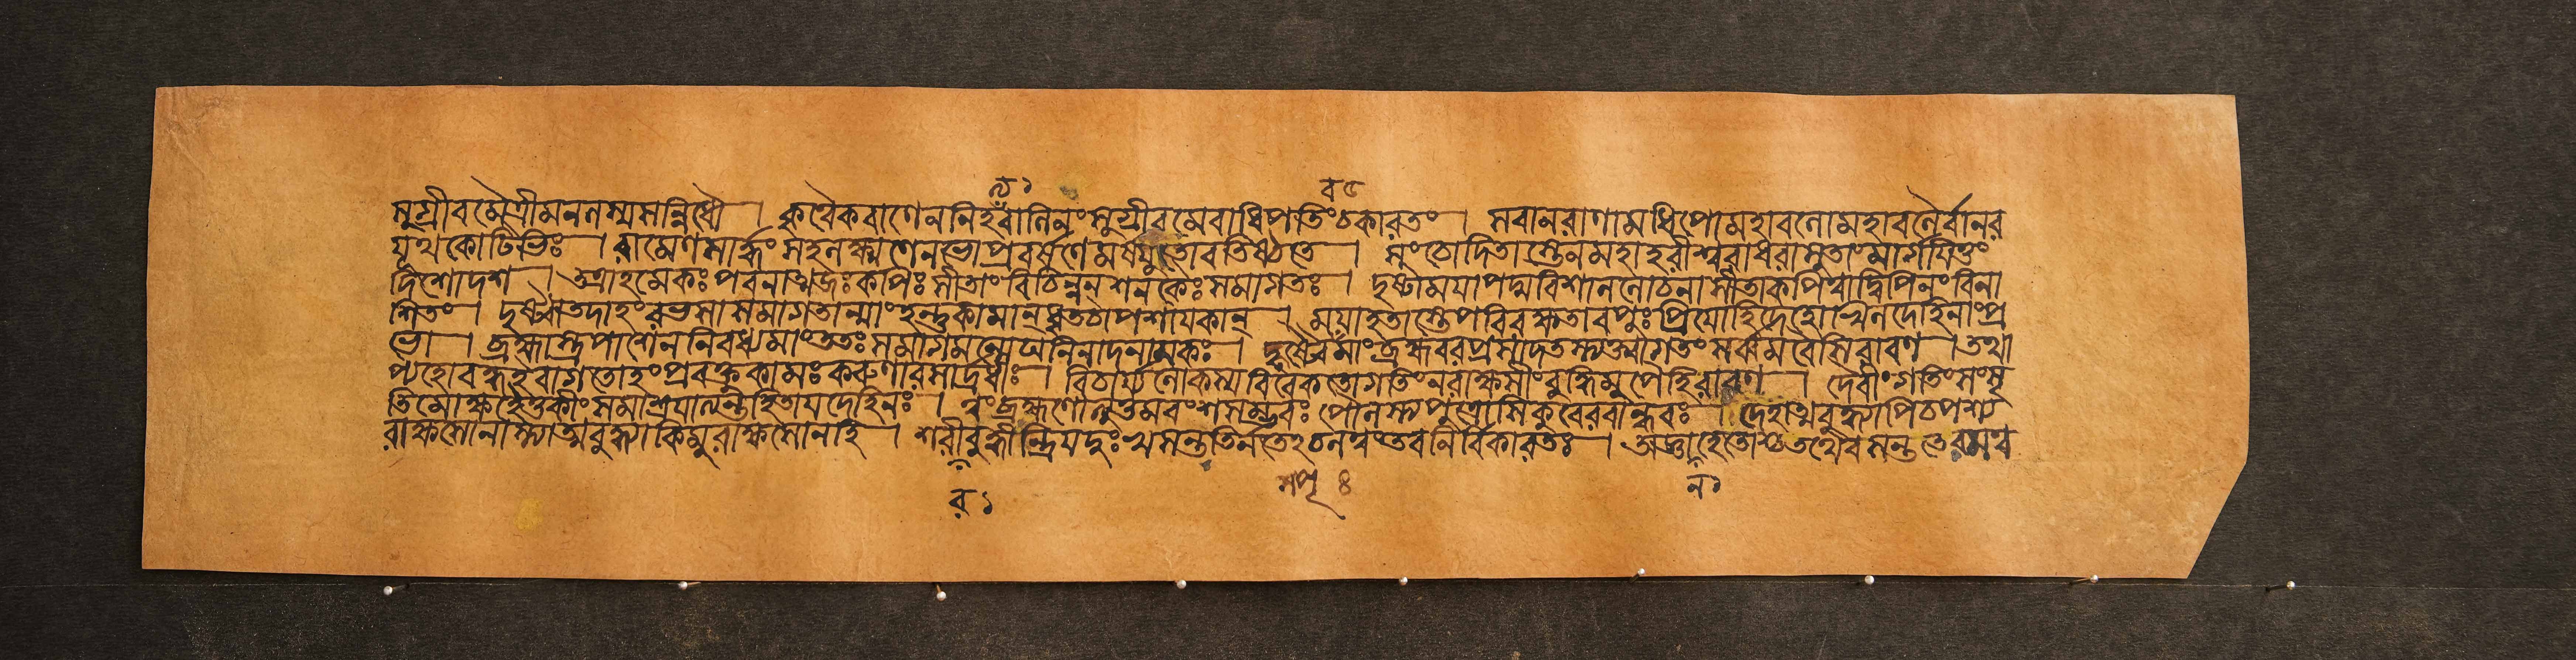 ত্য ১ ব ৫
সুগ্রীবমৈত্রীমনলস্যসন্নিধৌ । কৃত্বৈকবাণেননিহবালিনংসুগ্রীবমেবাধিপতিংচকারতং । সবানরাণামধিপোমহাবলোমহাবলৈর্বানর
যূথকোটিভিঃ । রামেণসার্দ্ধংসহলক্ষ্মণেনভোপ্রবর্ষণেমর্ষযুতোবতিষ্ঠতে । সংচোদিতাস্তেনমহাহরীশ্বরাধরাসুতাংমার্গযিতুং
দিশোদশ । তত্রাহমেকঃপবনাত্মজঃকপিঃসীতাংবিচিন্বন্শনকৈঃসমাগতঃ । দৃষ্টামযাপদ্মবিশাললোচনাসীতাকপিত্বাদ্বিপিনংবিনা
শিতং । দৃষ্ট্বাতদাহংরভসাসমাগতান্মাংহন্তুকামান্ধৃতচাপশাযকান্ । মযাহতাস্তেপরিরক্ষতাবপুঃপ্রিযোহিদেহোখিলদেহিনাংপ্র
ভো । ব্রহ্মাস্ত্রপাশেননিবধ্যমাংততঃসমাগমন্মেঘনিনাদনামকঃ । স্পৃষ্ট্বৈবমাংব্রহ্মবরপ্রসাদতস্ত্যক্ত্বাগতংসর্বমবৈমিরাবণ । তথা
প্যহোবদ্ধইবাগতোহংপ্রবক্তুকামঃকরুণারসার্দ্রধীঃ । বিচার্য্যলোকস্যবিবেকতোগতিংনরাক্ষসীংবুদ্ধিমুপৈহিরাবণ । দৈবীংগতিংসংসৃ
তিমোক্ষহৈতুকীংসমাশ্রযাত্যন্তহিতাযদেহিনঃ । ত্বংব্রহ্মণোহ্যুত্তমবংশসম্ভবঃপৌলস্ত্যপুত্রোসিকুবেরবান্ধবঃ । দেহাত্মবুদ্ধ্যাপিচপশ্য
রাক্ষসোনাস্যাত্মবুদ্ধ্যাকিমুরাক্ষসোনহি । শরীবুদ্ধীন্দ্রিযদুঃখসন্ততির্নতেনচত্বংতবনির্বিকারতঃ । অজ্ঞাহেতোশ্চতথৈবসন্ততেরসত্ব
র ১ ন ১